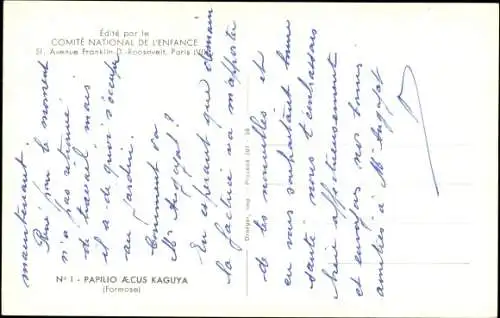 Édité par le
COMITÉ NATIONAL DE L'ENFANCE
51, Avenue Franklin-D.-Roosevelt, Paris (VIII
maintenant.
René pour le moment
n'a pas retrouvé
de travail mais
il a de quoi s'occuper
au jardin.
Comment va
Mr Augagat ?
En espérant que demain
la factrice va m'apporter
de tes nouvelles et
en vous souhaitant bonne
santé nous t'embrassons
bien affectueusement
et envoyons nos bonnes
amitiés à Mr Augagat
Draeger, imp.
N° 1 - PAPILIO ÆCUS KAGUYA
(Formose)